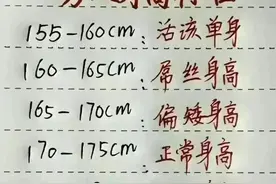 155-160cm:活该单身
160-165cm:屌丝身高
165-170cm:偏矮身高
170-175cm:正常身高